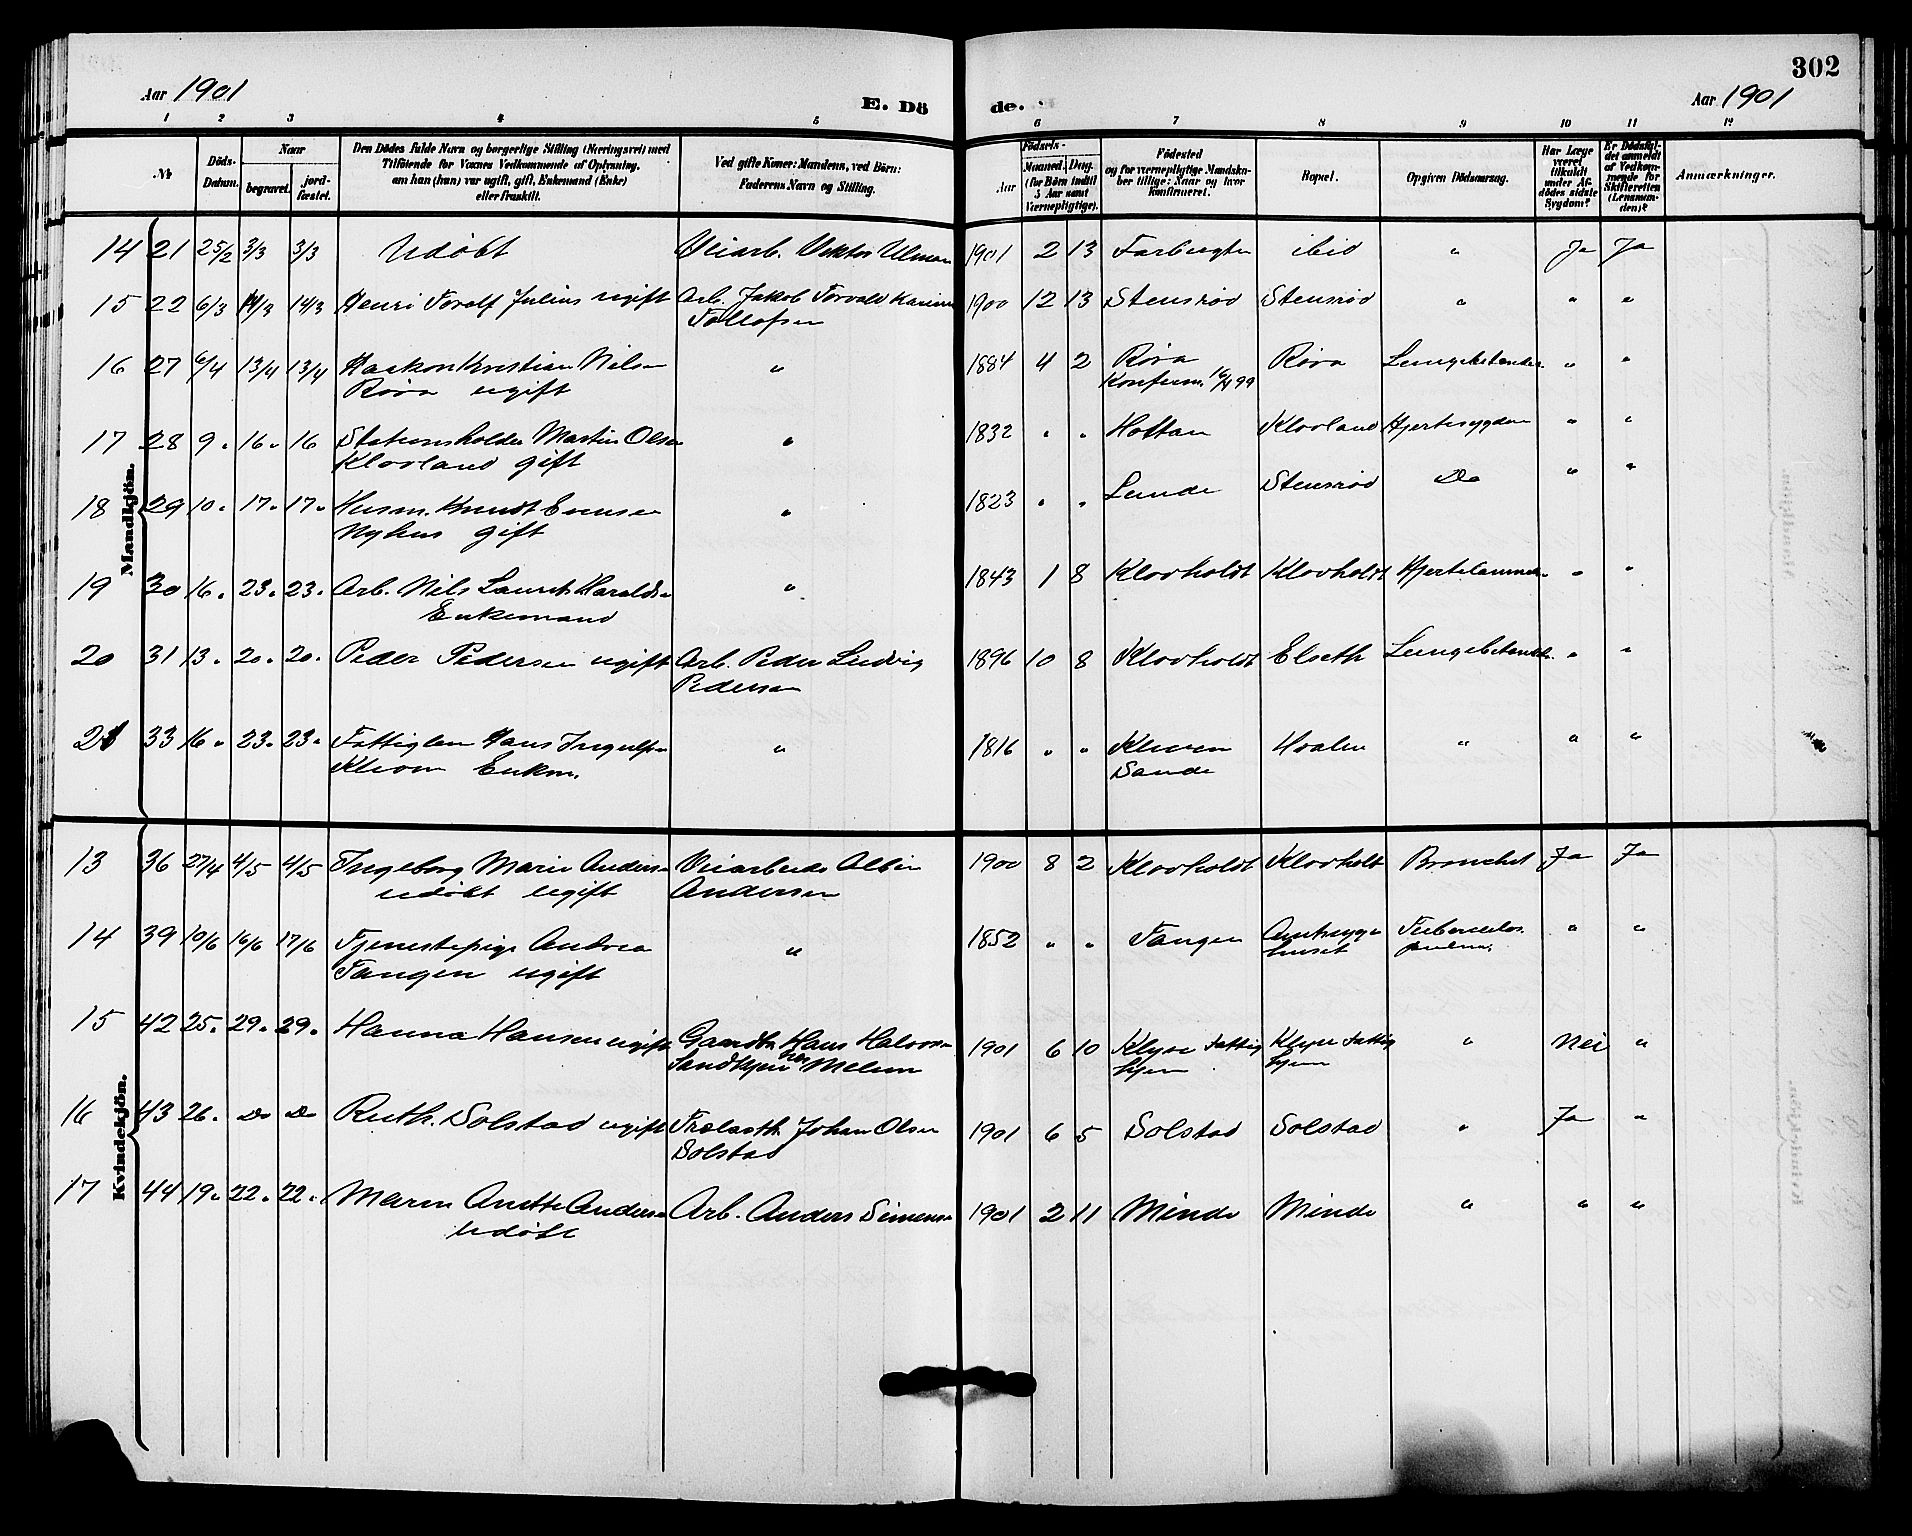 302
Aar 1901
E. Dö
de.
Aar 1901
1 2 3 4 5 6 7 8 9 10 11 12
No
Döds-Datum.
Naar
begravet. jord-fæstet.
Den Dödes fulde Navn og borgerlige Stilling (Næringsvei) med
Tilföiende for Voxnes Vedkommende af Oplysning,
om han (hun) var ugift, gift, Enkemand (Enke)
eller fraskilt.
Ved gifte Koner: Mandens, ved Börn:
Faderens Navn og Stilling.
Födsels-
Aar
Maaned. Dag.
(for Börn indtil
5 Aar samt
Værnepligtige).
Födested
og for værnepligtige Mandskaber tillige: Naar og hvor
konfirmeret.
Bopæl.
Opgiven Dödsaarsag.
Har Læge
været
tilkaldt
under Afdödes sidste
Sygdom?
Er Dödsfaldet anmeldt
af Vedkommende for
Skifteretten
(Lensmanden)?
Anmærkninger.
Mandkjön.
14 21 25/2 3/3 3/3 Udøbt Veiarb. Viktor Ulman 1901 2 13 ibid " Ja Ja
15 22 6/3 14/3 14/3 Henri Toralf Julius ugift Arb. Jakob Torvald 1900 12 13 Stensrød Stensrød " " "
Tollefsen
16 27 6/4 13/4 13/4 Haakon Kristian Nilsen " 1884 4 2 Røra Røra " "
Røra ugift Konfirm. 16/4 99
17 28 9 " 16 " 16 Stationsholder Martin Olsen " 1832 " " Holtan Klovland Hjertesygdom " "
Klovland gift
18 29 10 " 17 " 17 " Husm. Knudt Evensen " 1823 " " Lunde Stensrød Do " "
Nyhus gift
19 30 16 " 23 " 23 " Arb. Nils Laurits Haralds " 1843 1 8 Klovholdt Klovholdt " "
Enkemand
20 31 13 " 20 " 20 " Peder Pedersen ugift Arb. Peder Ludvig 1896 10 8 Klovholdt Elseth " "
Pedersen
21 33 16 " 23 " 23 " Fattiglem Hans " 1816 " " Kleven " " "
Kleven Enkm. Sande
Kvindekjön.
13 36 27/4 4/5 4/5 Ingeborg Marie Anders Veiarbeider Albin 1900 8 2 Klovholdt Klovholt Bronchit Ja Ja
udøbt ugift Andersen
14 39 10/6 16/6 17/6 Tjenestepige Andrea " 1852 " " Tangen Amtsyge " "
Tangen ugift huset
15 42 25 " 29 " 29 " Hanna Hansen ugift Gaardbr. Hans Halvors 1901 6 10 Klyve Fattig Klyve Fattig " Nei "
Melum hjem hjem
16 43 26 " Do Do Ruth Solstad ugift Trælasth. Johan Olsen 1901 6 5 Solstad Solstad " Ja "
Solstad
17 44 19 " 22 " 22 " Maren Anette Anders Arb. Anders Simens 1901 2 11 Minde Minde " " "
Udøbt